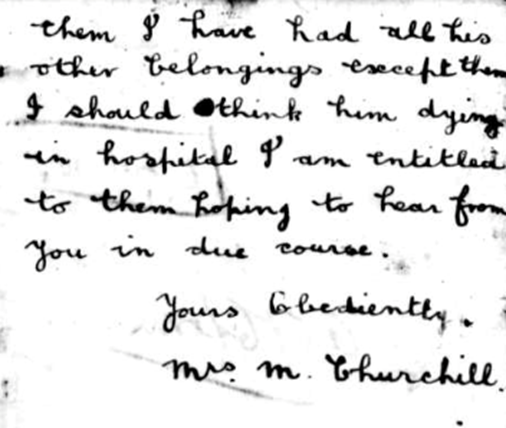 them I have had all his
other belongings except them
I should think him dying
in hospital I am entitled
to them hoping to hear from
you in due course.
Yours Obediently.
Mrs. M. Churchill.